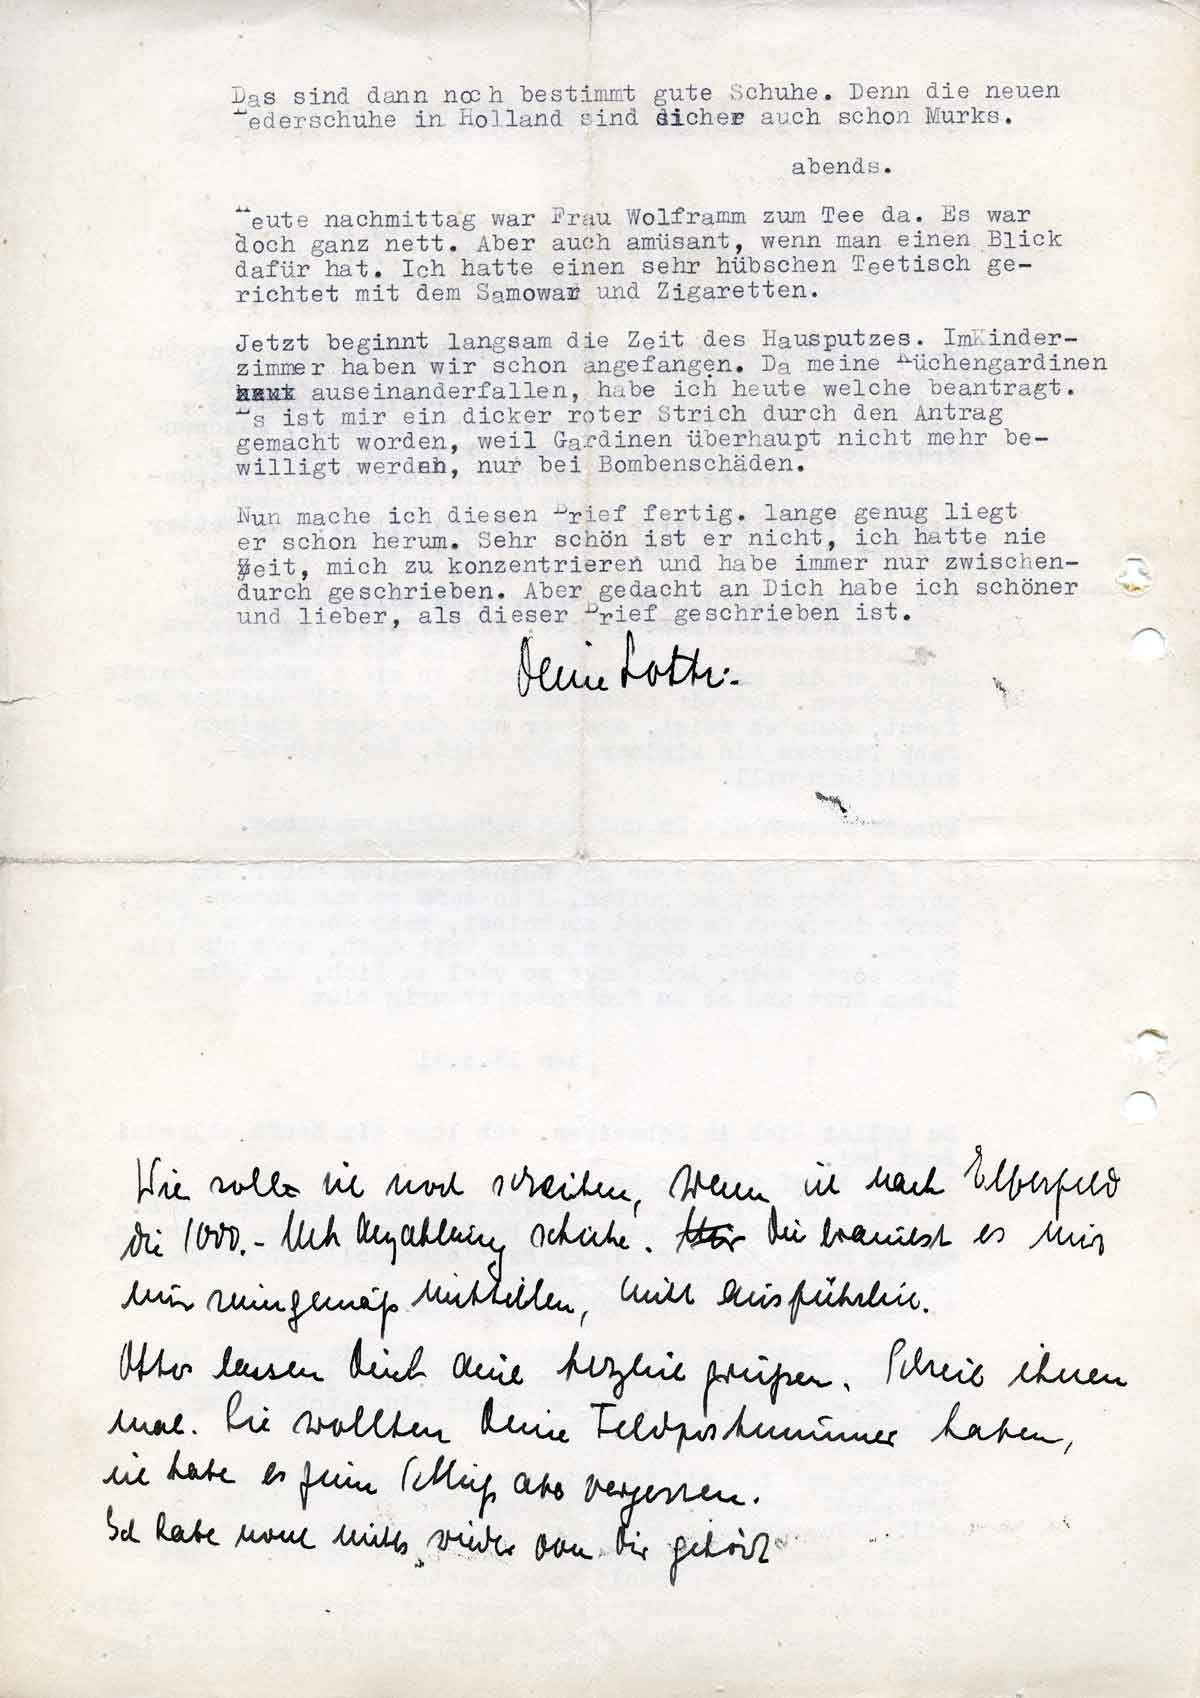 Das sind dann noch bestimmt gute Schuhe. Denn die neuen
Lederschuhe in Holland sind sicher auch schon Murks.
abends.
Heute nachmittag war Frau Wolframm zum Tee da. Es war
doch ganz nett. Aber auch amüsant, wenn man einen Blick
dafür hat. Ich hatte einen sehr hübschen Teetisch ge-
richtet mit dem Samowar und Zigaretten.
Jetzt beginnt langsam die Zeit des Hausputzes. ImKinder-
zimmer haben wir schon angefangen. Da meine Küchengardinen
auseinanderfallen, habe ich heute welche beantragt.
Es ist mir ein dicker roter Strich durch den Antrag
gemacht worden, weil Gardinen überhaupt nicht mehr be-
willigt werden, nur bei Bombenschäden.
Nun mache ich diesen Brief fertig. lange genug liegt
er schon herum. Sehr schön ist er nicht, ich hatte nie
Zeit, mich zu konzentrieren und habe immer nur zwischen-
durch geschrieben. Aber gedacht an Dich habe ich schöner
und lieber, als dieser Brief geschrieben ist.
Deine Lotte.-
Wie soll ich noch schreiben, wenn ich nach Elberfeld
die 1000.- Mk Anzahlung schicke. Du brauchst es mir
nur sinngemäß mitteilen, nicht ausführlich.
Ottos lassen Dich herzlich grüßen. Schreib ihnen
mal. Sie wollten Deine Feldpostnummer haben,
ich habe es zum Schluß aber vergessen.
Ich habe noch nichts wieder von Dir gehört